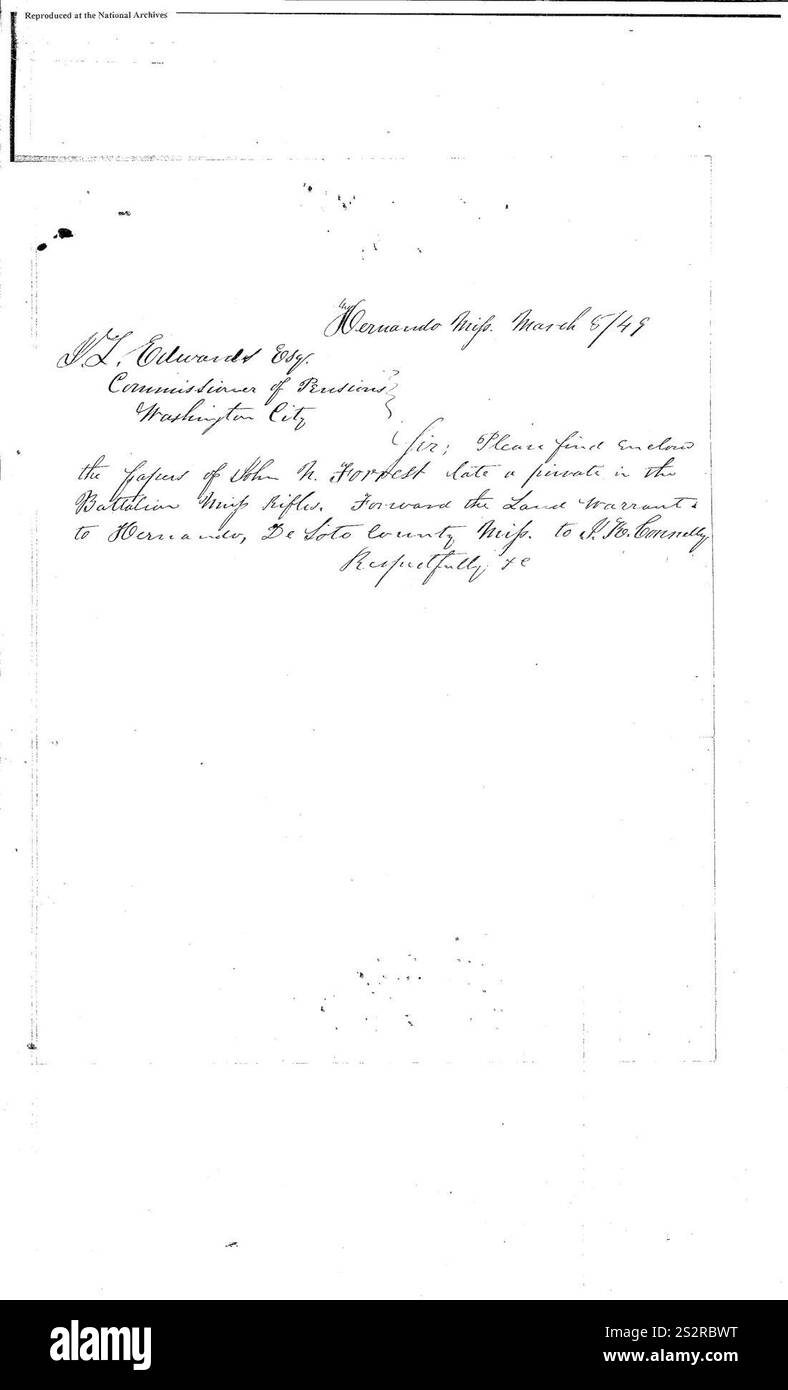 Reproduced at the National Archives
Hernando Miss. March 8/49
J. L. Edwards Esq.
Commissioner of Pensions
Washington City
Sir; Please find enclosed
the papers of John N. Forrest late a private in the
Battalion Miss Rifles. Forward the Land Warrant
to Hernando, De Soto County Miss. to J. H. Connelly
Respectfully &c
alamy
Image ID: 2S2RBWT
www.alamy.com